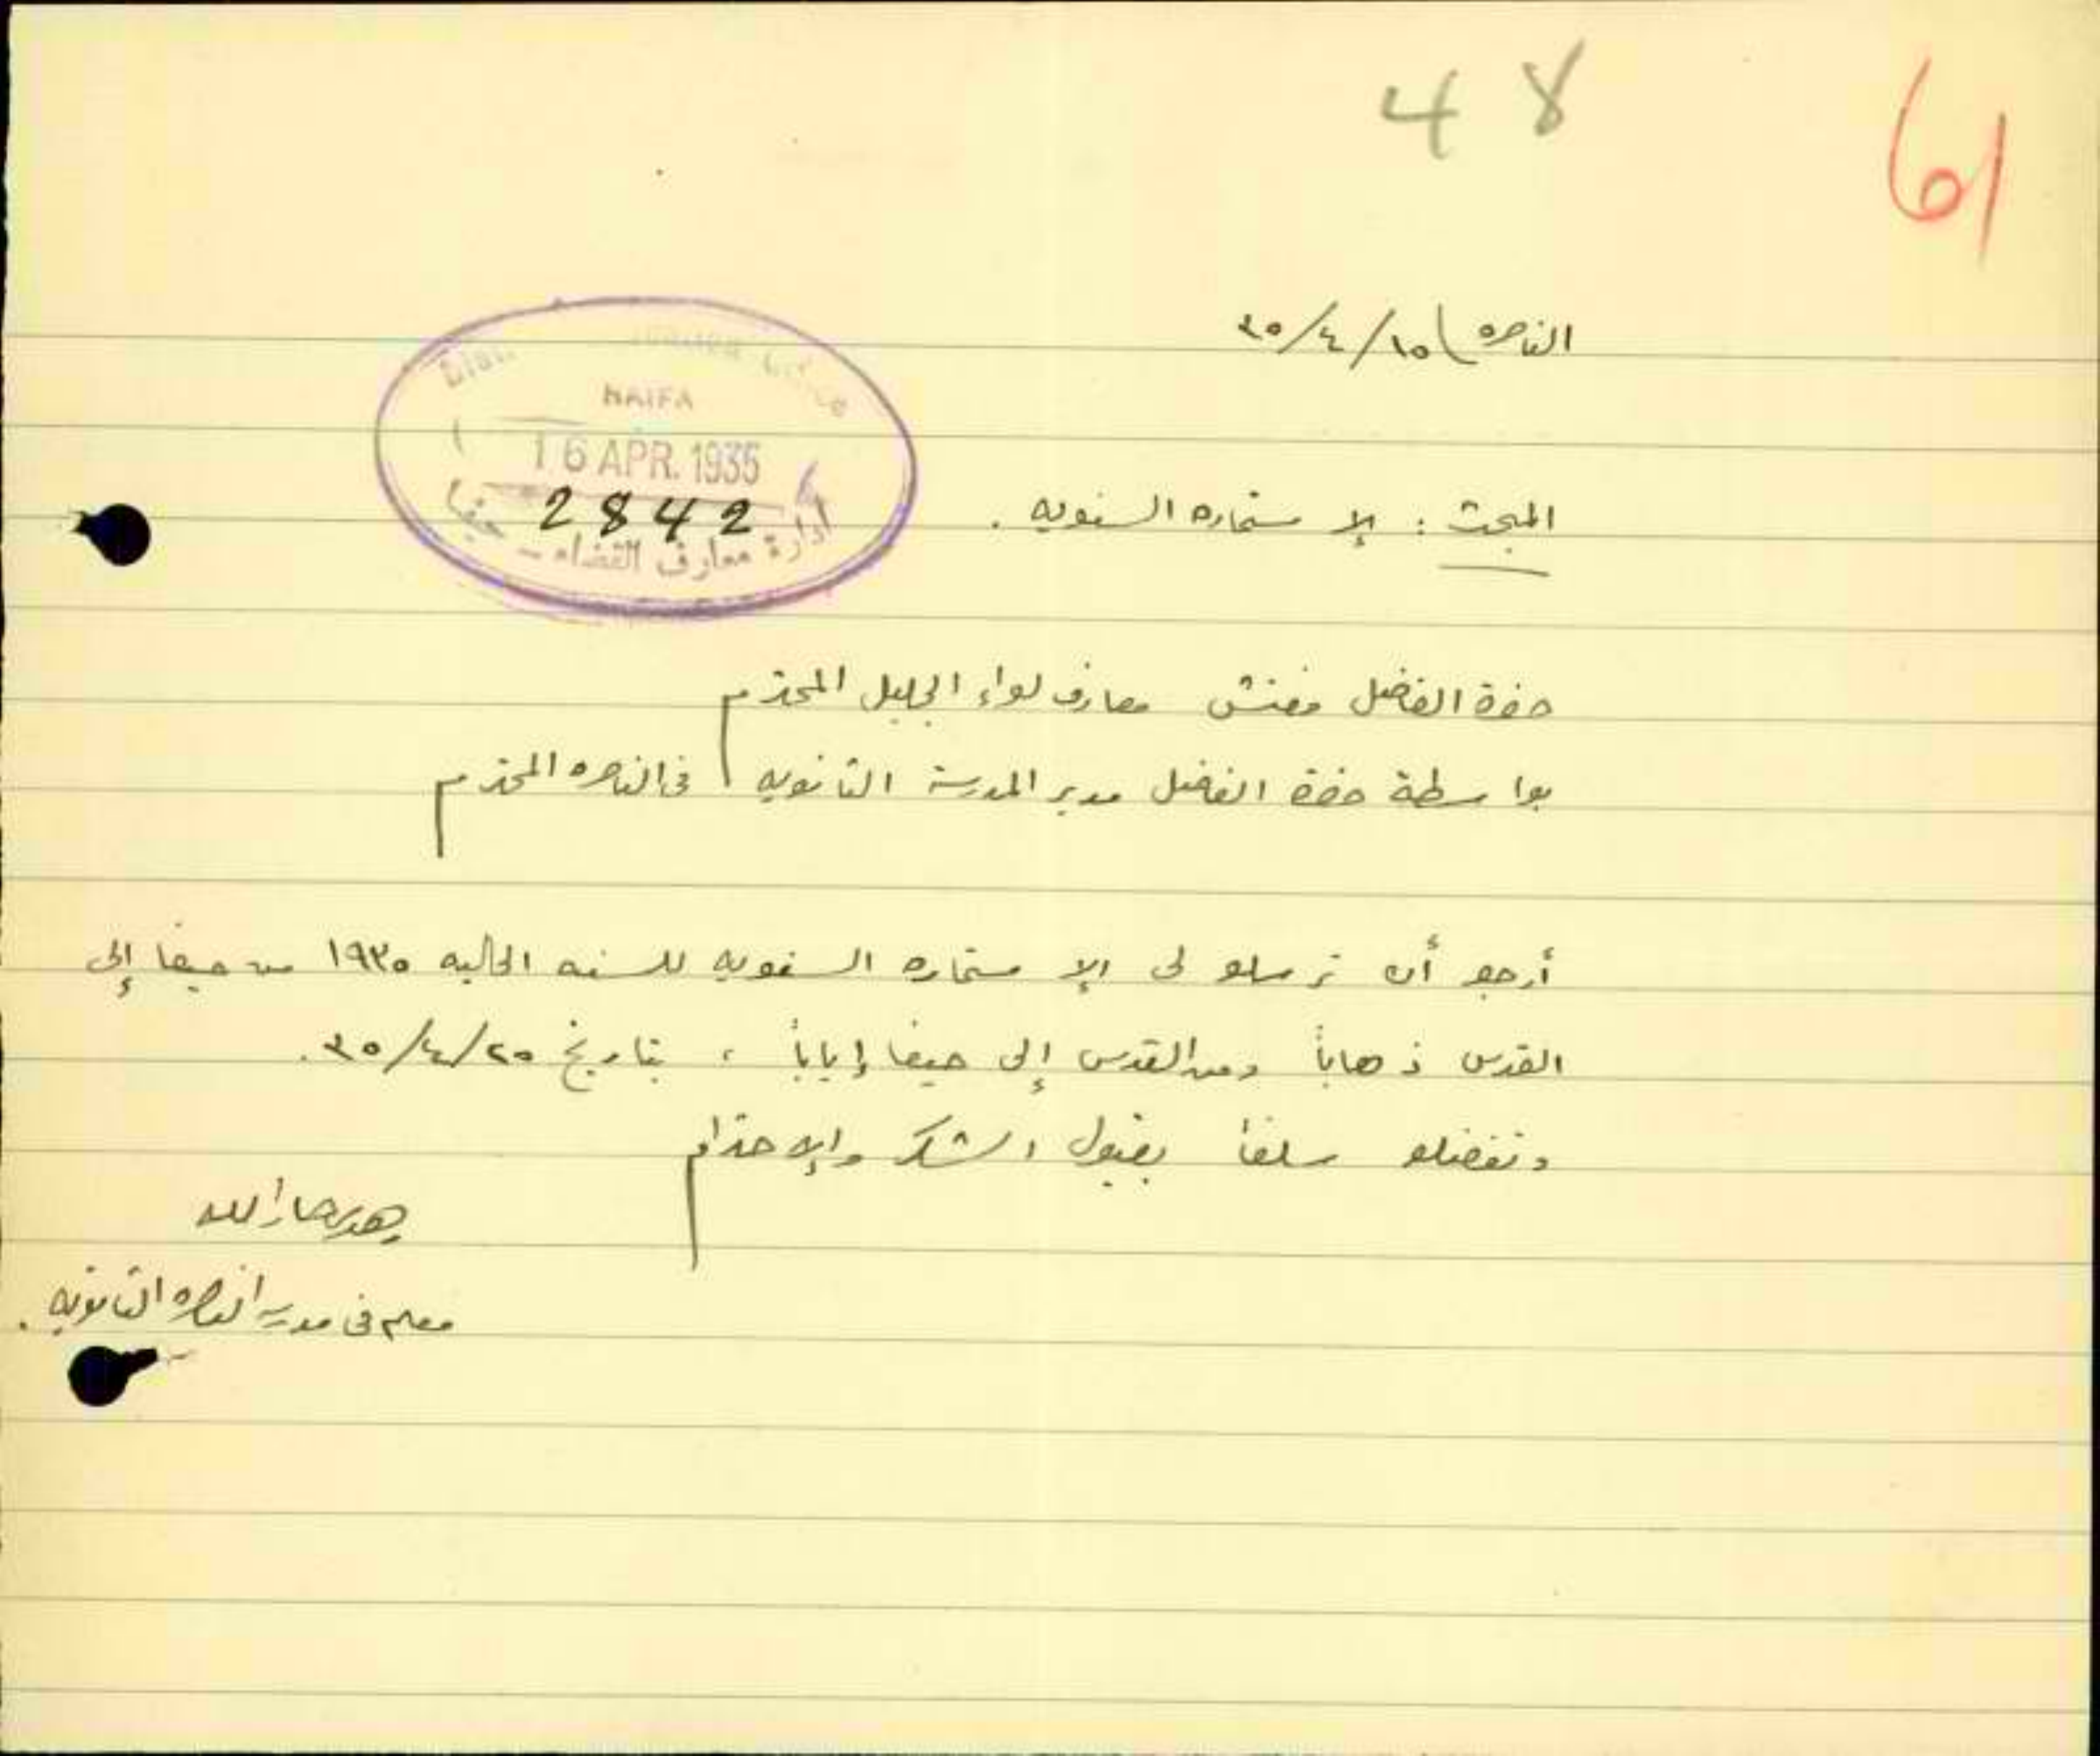 48
61
الناصره ١٥/٤/٣٥
HAIFA
16 APR. 1935
2842
ادارة معارف القضاء - حيفا
المبحث : الإستماره السنويه .
حضرة الفاضل مفتش معارف لواء الجليل المحترم
بواسطة حضرة الفاضل مدير المدرسة الثانويه في الناصره المحترم
أرجو أن ترسلو لى الإستماره السنويه للسنه الحاليه ١٩٣٥ من حيفا إلى
القدس ذهاباً ومن القدس إلى حيفا إياباً ، بتاريخ ٢٥/٤/٣٥.
وتفضلو سلفاً بقبول الشكر والإحترام
جارالله
معلم فى مدرسة الناصره الثانويه .